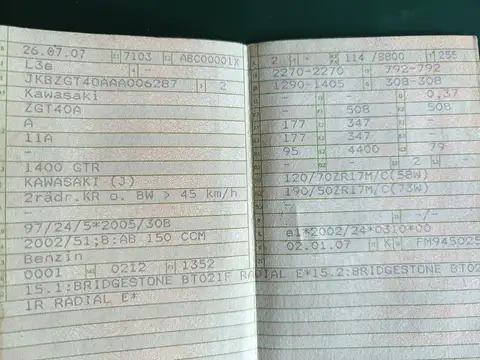 26.07.07 7103 ABC00001X
L3e -
JKBZGT40AAA006287 2
Kawasaki
ZGT40A
A
11A
-
1400 GTR
KAWASAKI (J)
2rädr.KR o. BW > 45 km/h
-
97/24/5*2005/30B
2002/51;B:AB 150 CCM
Benzin
0001 0212 1352
15.1:BRIDGESTONE BT021F RADIAL E*15.2:BRIDGESTONE BT02
1R RADIAL E*
2 - 114 /8800 255
2270-2270 792-792
1290-1405 308-308
- - 0,37
- 508 508
177 347 -
177 347 -
95 4400 0,79
- 2 -
120/70ZR17M/C(58W)
190/50ZR17M/C(73W)
- -/-
e1*2002/24*0310*00
02.01.07 K FM945025